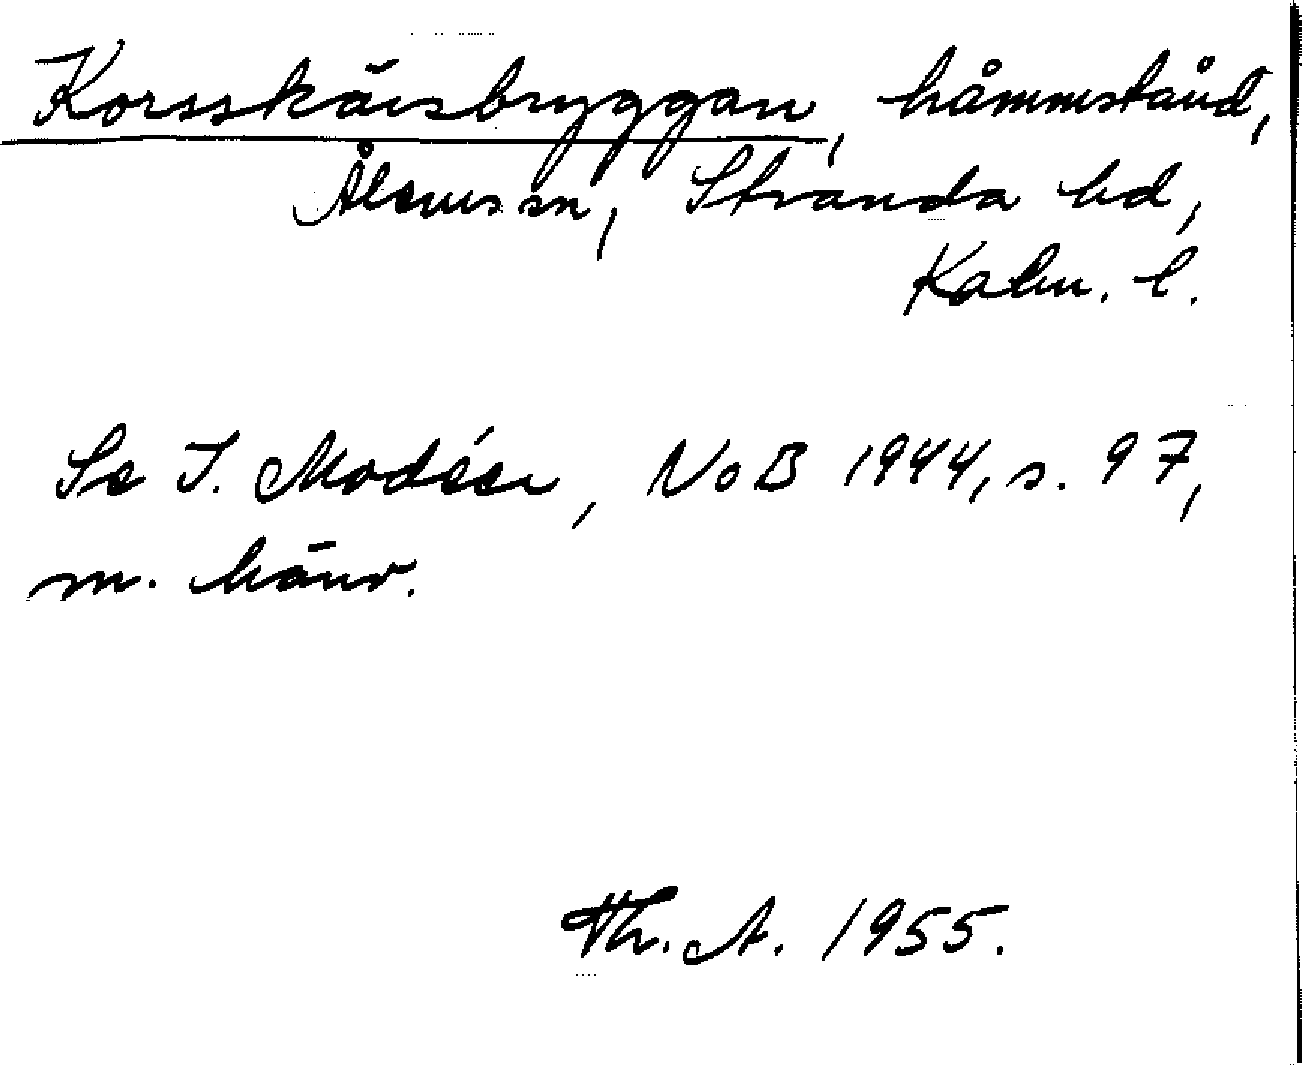 Korsskärsbryggan, håmmståud,
Ålems sn, Stranda hd,
Kalm. l.
Se I. Modéer, NoB 1944, s. 97,
m. hänv.
Th. A. 1955.